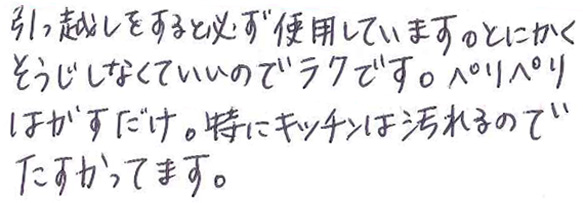 引っ越しをすると必ず使用しています。とにかく
そうじしなくていいのでラクです。ペリペリ
はがすだけ。特にキッチンは汚れるので
たすかってます。